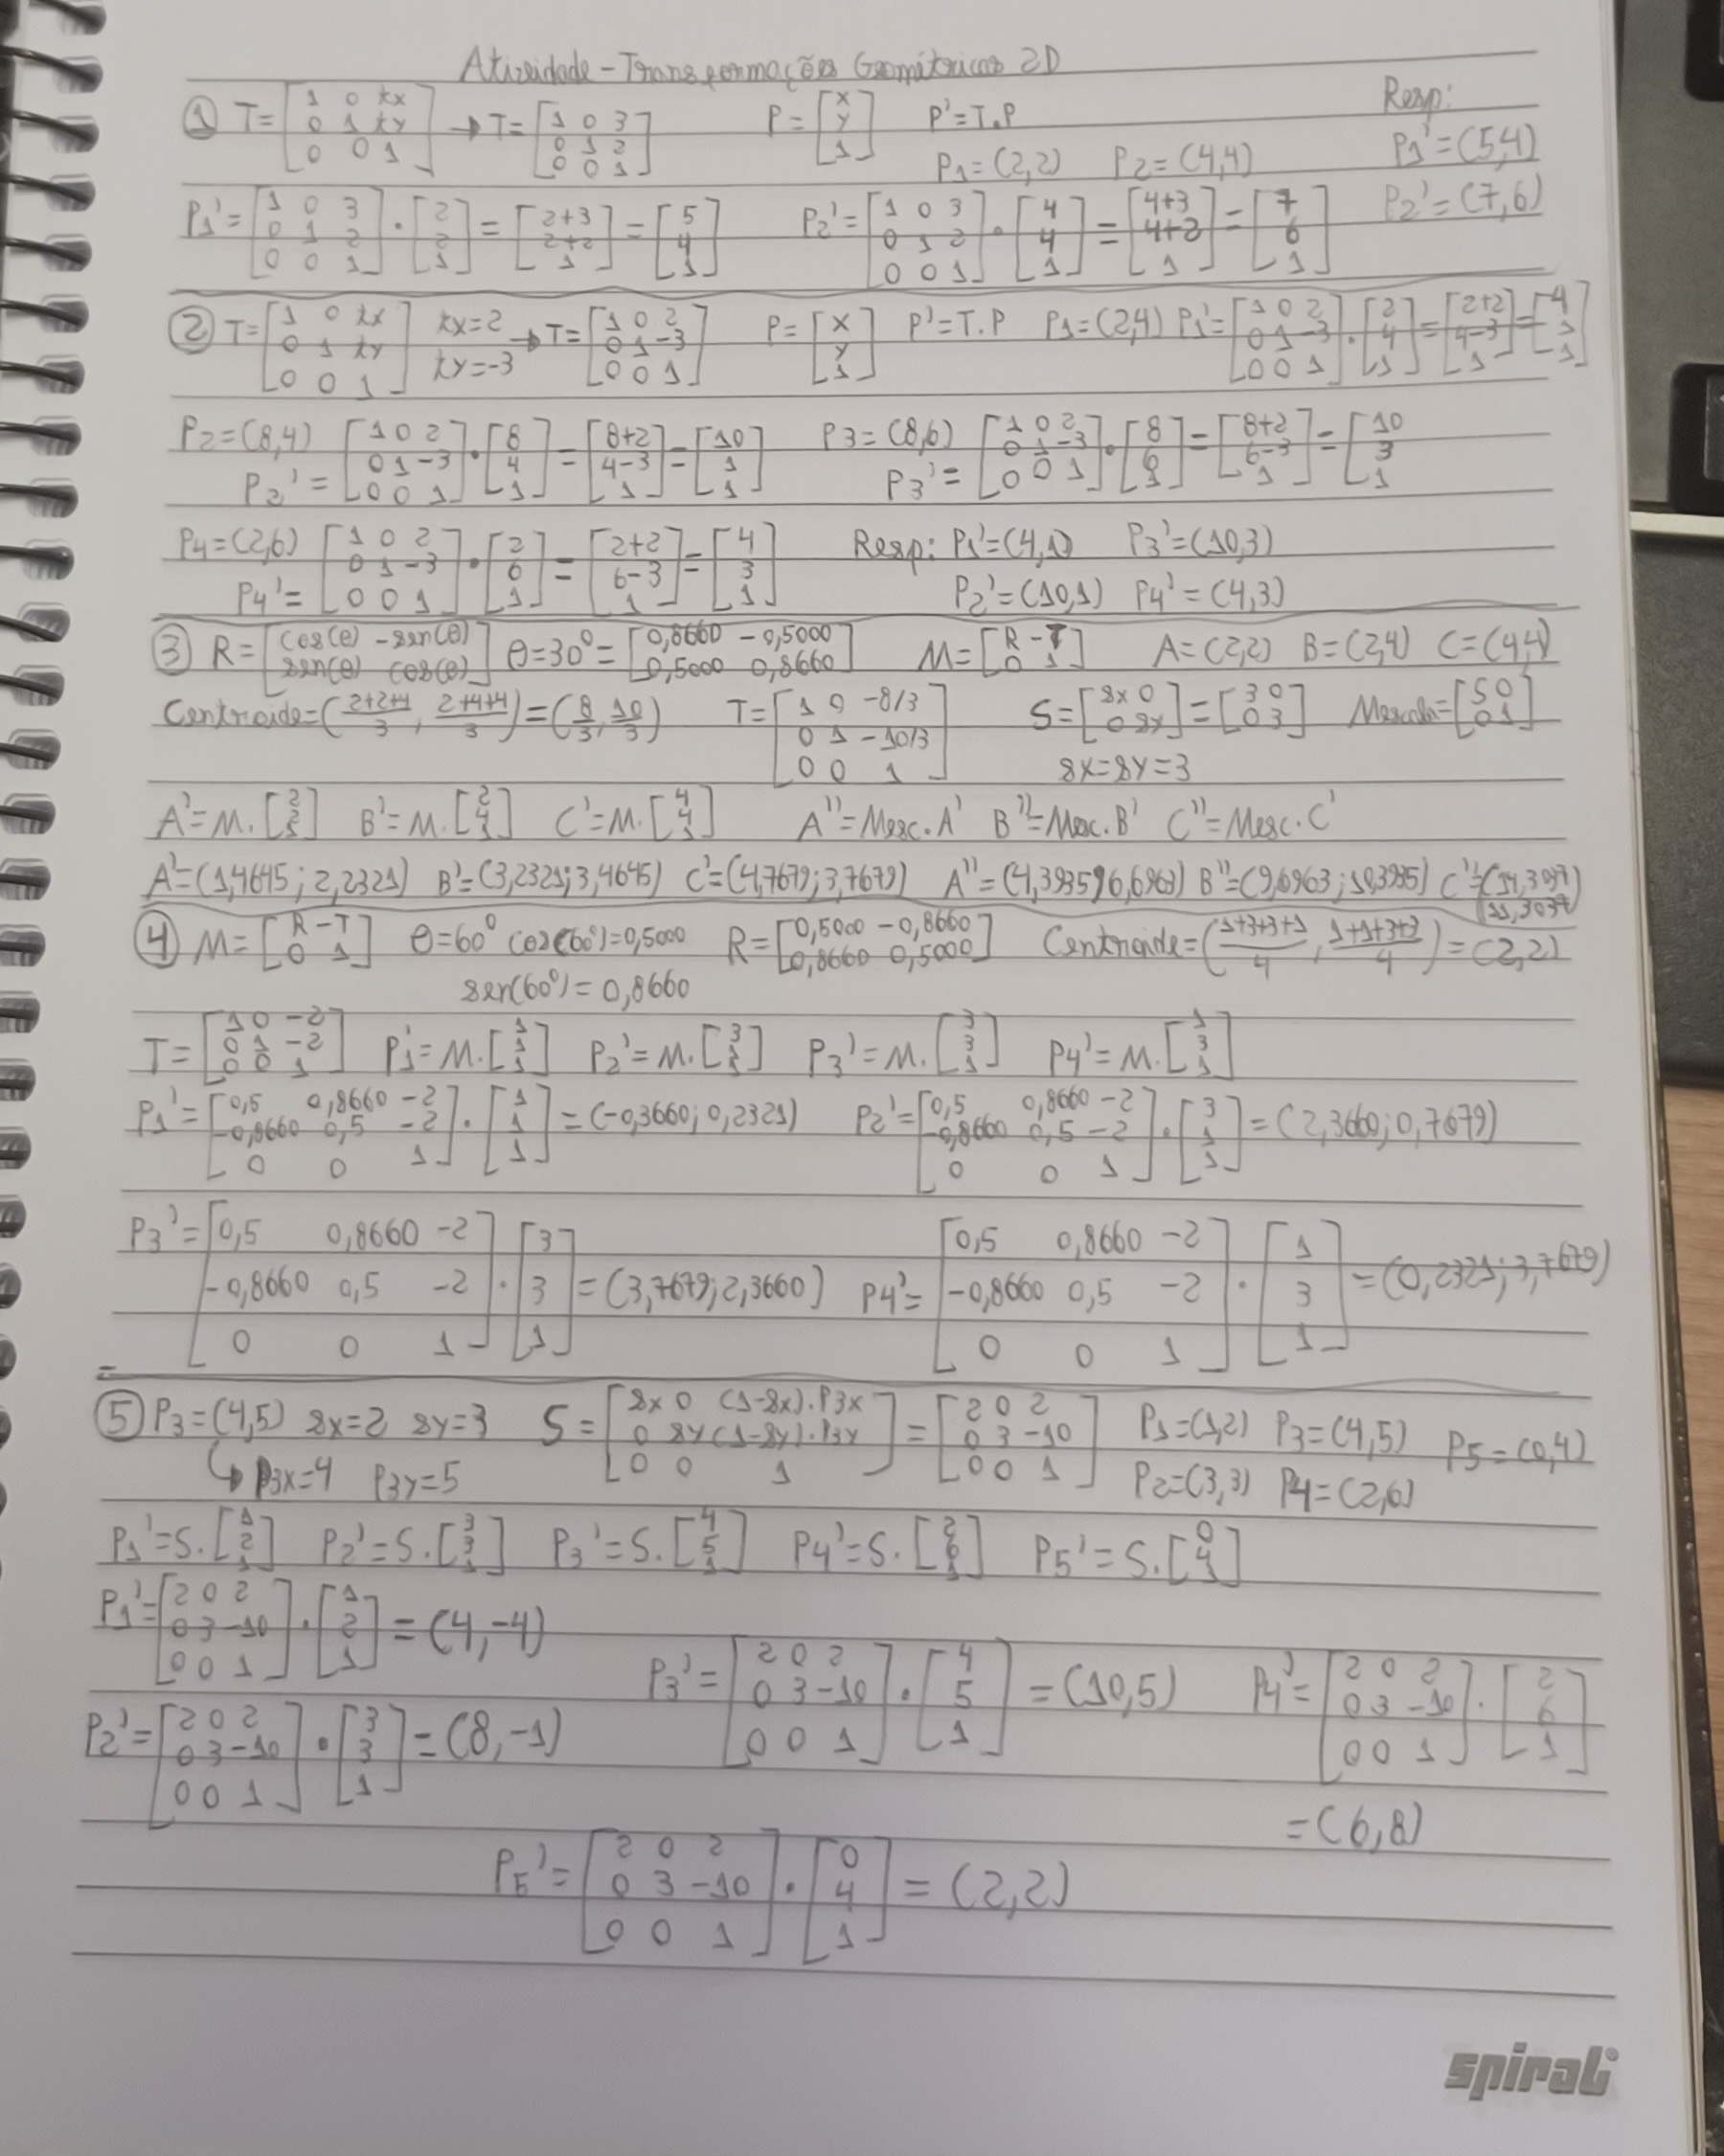 Atividade - Transformações Geométricas 2D
① T = [1 0 tx; 0 1 ty; 0 0 1] → T = [1 0 3; 0 1 2; 0 0 1] P = [x; y; 1] P' = T.P Resp:
P1 = (2,2) P2 = (4,4) P1' = (5,4)
P1' = [1 0 3; 0 1 2; 0 0 1] . [2; 2; 1] = [2+3; 2+2; 1] = [5; 4; 1] P2' = [1 0 3; 0 1 2; 0 0 1] . [4; 4; 1] = [4+3; 4+2; 1] = [7; 6; 1] P2' = (7,6)
② T = [1 0 tx; 0 1 ty; 0 0 1] tx = 2 ty = -3 → T = [1 0 2; 0 1 -3; 0 0 1] P = [x; y; 1] P' = T.P P1 = (2,4) P1' = [1 0 2; 0 1 -3; 0 0 1] . [2; 4; 1] = [2+2; 4-3; 1] = [4; 1; 1]
P2 = (8,4) P2' = [1 0 2; 0 1 -3; 0 0 1] . [8; 4; 1] = [8+2; 4-3; 1] = [10; 1; 1] P3 = (8,6) P3' = [1 0 2; 0 1 -3; 0 0 1] . [8; 6; 1] = [8+2; 6-3; 1] = [10; 3; 1]
P4 = (2,6) P4' = [1 0 2; 0 1 -3; 0 0 1] . [2; 6; 1] = [2+2; 6-3; 1] = [4; 3; 1] Resp: P1' = (4,1) P3' = (10,3)
P2' = (10,1) P4' = (4,3)
③ R = [cos(θ) -sen(θ); sen(θ) cos(θ)] θ = 30° = [0,8660 -0,5000; 0,5000 0,8660] M = [R -T; 0 1] A = (2,2) B = (2,4) C = (4,4)
Centroide = (2+2+4/3, 2+4+4/3) = (8/3, 10/3) T = [1 0 -8/3; 0 1 -10/3; 0 0 1] S = [sx 0; 0 sy] = [3 0; 0 3] Mescala = [S 0; 0 1]
sx = sy = 3
A' = M.[2; 2; 1] B' = M.[2; 4; 1] C' = M.[4; 4; 1] A'' = Mesc.A' B'' = Mesc.B' C'' = Mesc.C'
A' = (1,4645; 2,2321) B' = (3,2321; 3,4645) C' = (4,7679; 3,7679) A'' = (4,3935; 6,6963) B'' = (9,6963; 10,3935) C'' = (14,3037; 11,3037)
④ M = [R -T; 0 1] θ = 60° cos(60°) = 0,5000 R = [0,5000 -0,8660; 0,8660 0,5000] Centroide = (1+3+3+1/4, 1+1+3+3/4) = (2,2)
sen(60°) = 0,8660
T = [1 0 -2; 0 1 -2; 0 0 1] P1' = M.[1; 1; 1] P2' = M.[3; 1; 1] P3' = M.[3; 3; 1] P4' = M.[1; 3; 1]
P1' = [0,5 0,8660 -2; -0,8660 0,5 -2; 0 0 1] . [1; 1; 1] = (-0,3660; 0,2321) P2' = [0,5 0,8660 -2; -0,8660 0,5 -2; 0 0 1] . [3; 1; 1] = (2,3660; 0,7679)
P3' = [0,5 0,8660 -2; -0,8660 0,5 -2; 0 0 1] . [3; 3; 1] = (3,7679; 2,3660) P4' = [0,5 0,8660 -2; -0,8660 0,5 -2; 0 0 1] . [1; 3; 1] = (0,2321; 3,7679)
⑤ P3 = (4,5) sx = 2 sy = 3 S = [sx 0 (1-sx).P3x; 0 sy (1-sy).P3y; 0 0 1] = [2 0 2; 0 3 -10; 0 0 1] P1 = (1,2) P3 = (4,5) P5 = (0,4)
↳ P3x = 4 P3y = 5 P2 = (3,3) P4 = (2,6)
P1' = S.[1; 2; 1] P2' = S.[3; 3; 1] P3' = S.[4; 5; 1] P4' = S.[2; 6; 1] P5' = S.[0; 4; 1]
P1' = [2 0 2; 0 3 -10; 0 0 1] . [1; 2; 1] = (4,-4)
P3' = [2 0 2; 0 3 -10; 0 0 1] . [4; 5; 1] = (10,5) P4' = [2 0 2; 0 3 -10; 0 0 1] . [2; 6; 1]
P2' = [2 0 2; 0 3 -10; 0 0 1] . [3; 3; 1] = (8,-1)
= (6,8)
P5' = [2 0 2; 0 3 -10; 0 0 1] . [0; 4; 1] = (2,2)
spiral